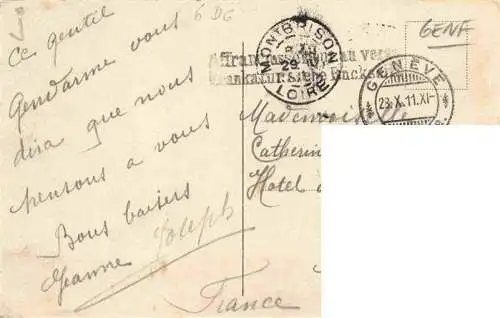 6 DG
GENF
Ce gentil
Gendarme vous
dira que nous
pensons a vous
Bons baisers
Jeanne Joseph
MONTBRISON
LOIRE
Affranchi au verso
Frankatur siehe Rückseite
GENÈVE
28.X.11.XI-
Mademoiselle
Catherin
Hotel
France